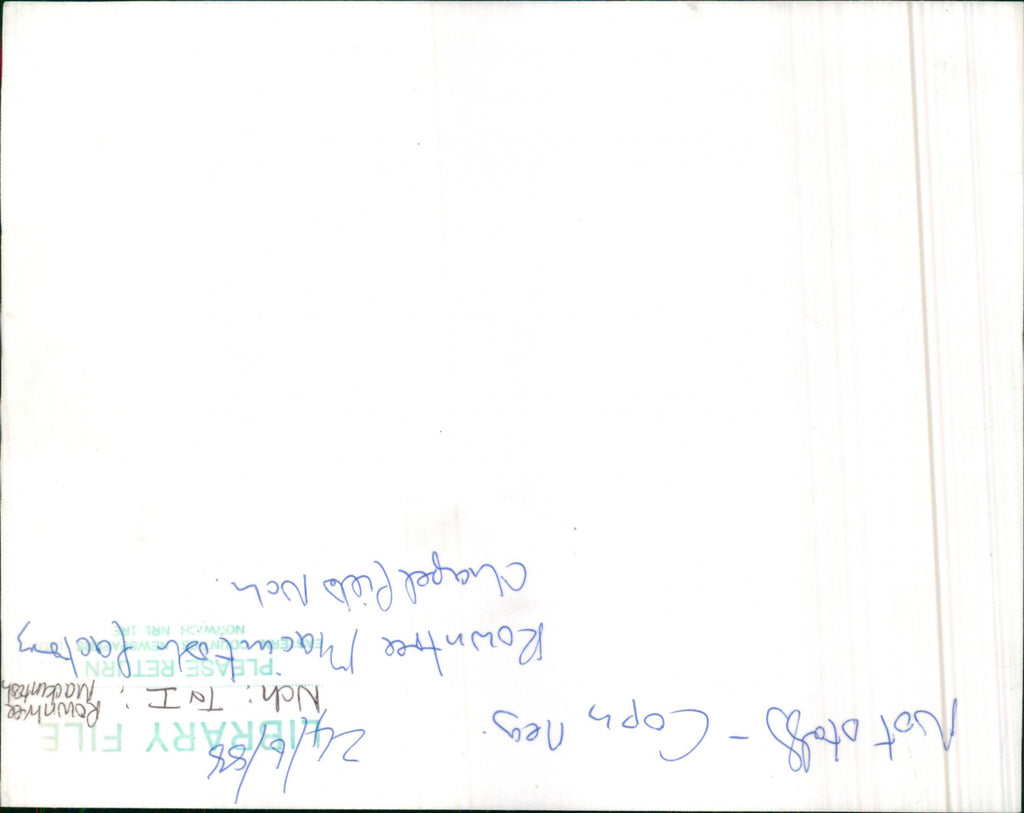 Not staff - Copy Neg. 24/6/88
LIBRARY FILE
Nch: T & I: Rowntree
Mackintosh
PLEASE RETURN
EASTERN COUNTIES NEWSPAPERS
NORWICH NR1 1RE
Rowntree Mackintosh factory
Chapel field Nch.